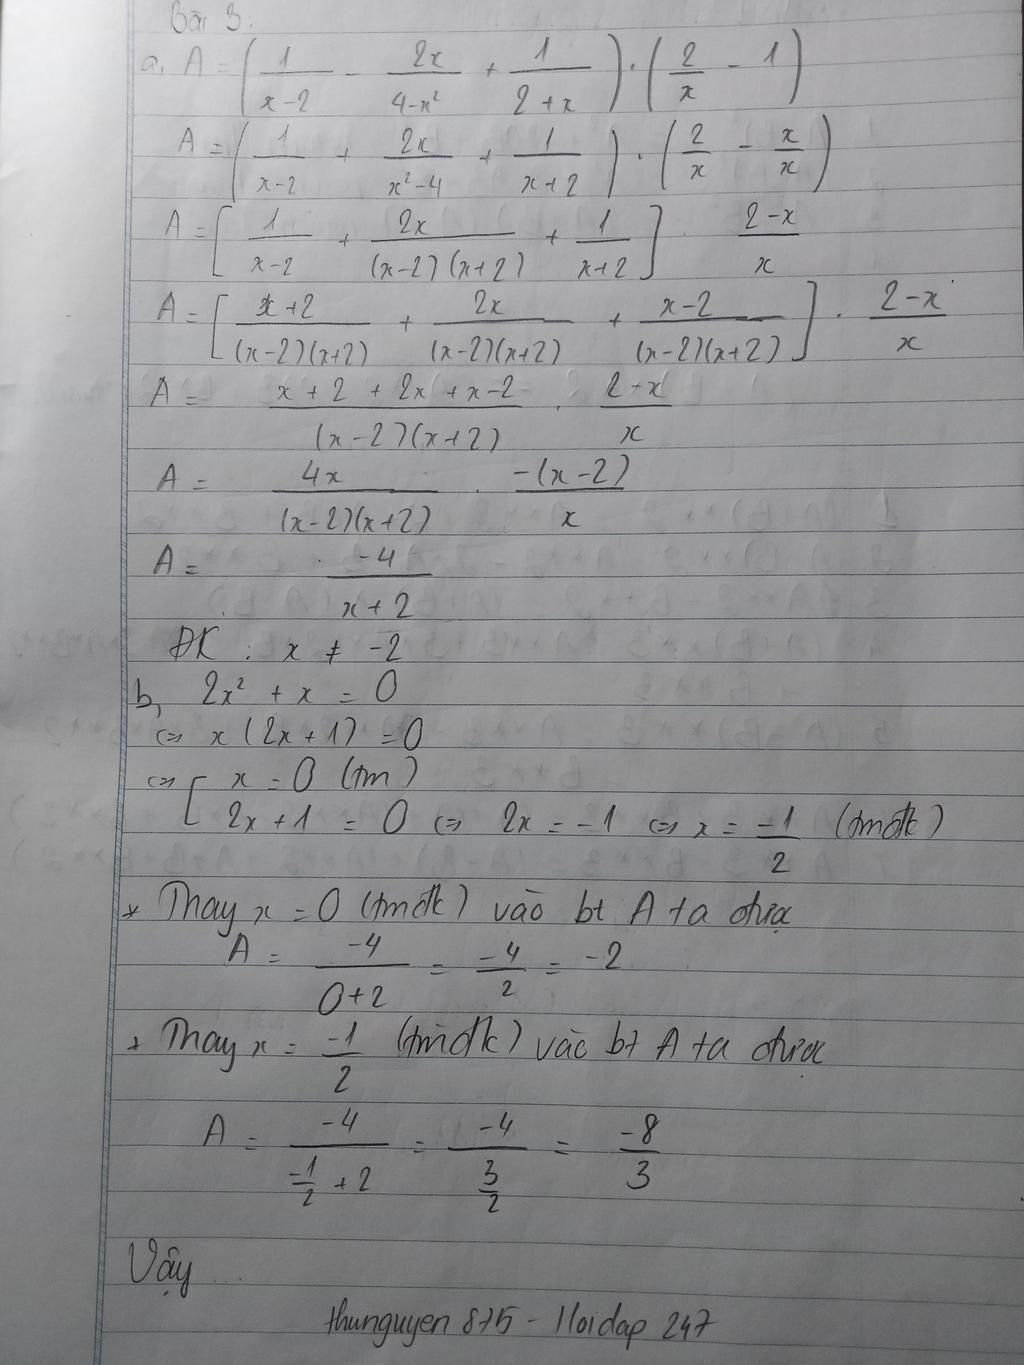 Bài 3:
a, A = ( 1/(x-2) - 2x/(4-x²) + 1/(2+x) ) . ( 2/x - 1 )
A = ( 1/(x-2) + 2x/(x²-4) + 1/(x+2) ) . ( 2/x - x/x )
A = [ 1/(x-2) + 2x/((x-2)(x+2)) + 1/(x+2) ] . (2-x)/x
A = [ (x+2)/((x-2)(x+2)) + 2x/((x-2)(x+2)) + (x-2)/((x-2)(x+2)) ] . (2-x)/x
A = (x+2+2x+x-2)/((x-2)(x+2)) . (2-x)/x
A = 4x/((x-2)(x+2)) . -(x-2)/x
A = -4/(x+2)
ĐK : x ≠ -2
b, 2x² + x = 0
⇔ x(2x+1) = 0
⇔ [ x = 0 (tm)
2x+1 = 0 ⇔ 2x = -1 ⇔ x = -1/2 (tmđk)
* Thay x = 0 (tmđk) vào bt A ta được
A = -4/(0+2) = -4/2 = -2
+ Thay x = -1/2 (tmđk) vào bt A ta được
A = -4/(-1/2 + 2) = -4/(3/2) = -8/3
Vậy ...
thunguyen 875 - Hoidap 247